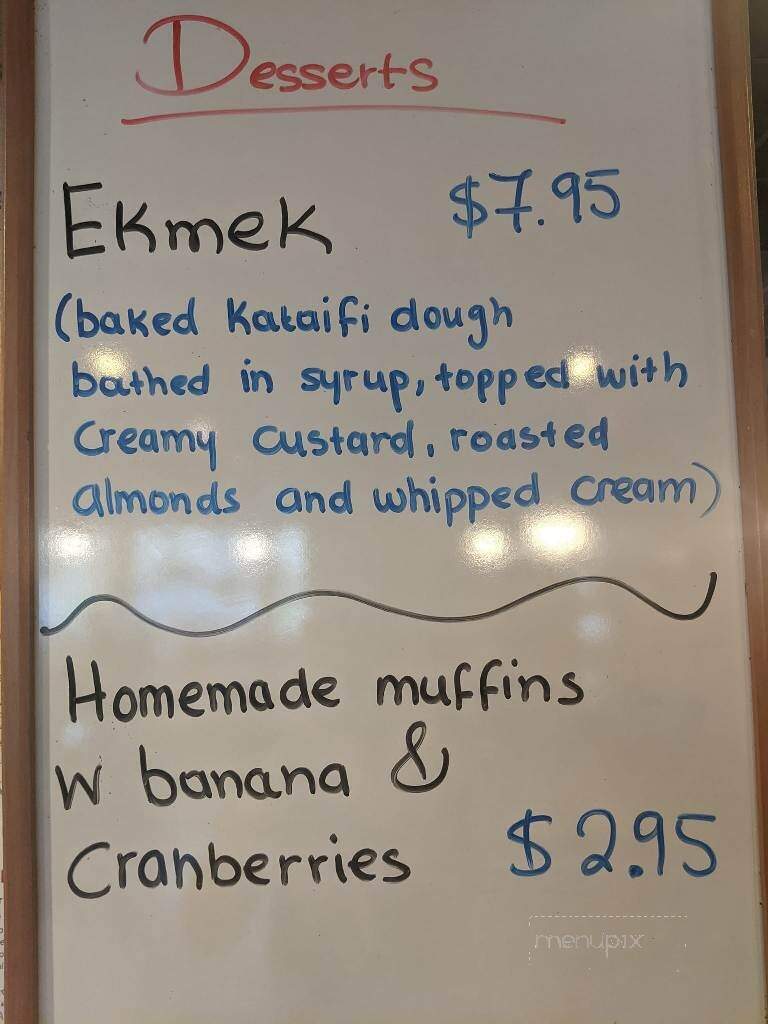 Desserts
Ekmek $7.95
(baked Kataifi dough
bathed in syrup, topped with
Creamy custard, roasted
almonds and whipped cream)
Homemade muffins
W banana &
Cranberries $2.95
menupix